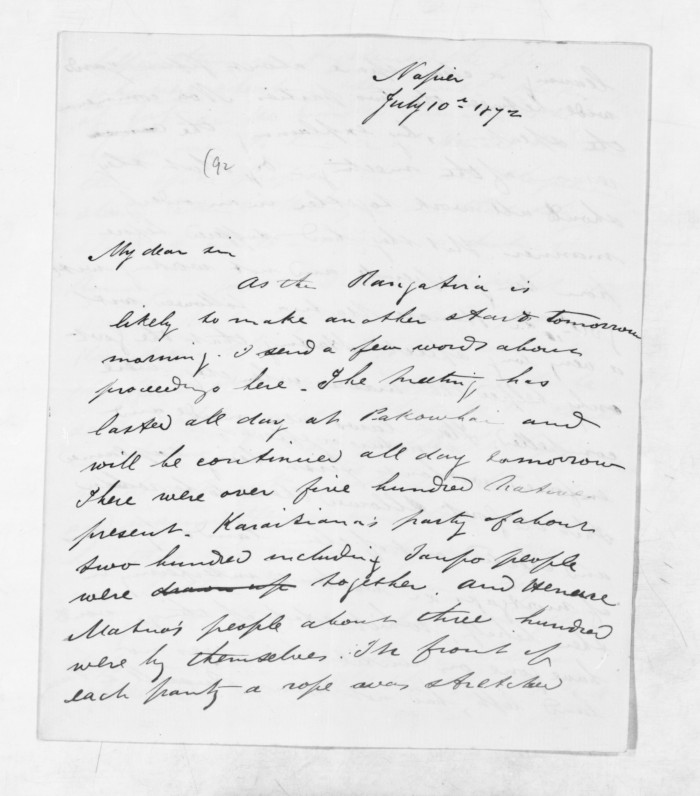 Napier
July 10th 1872
(92
My dear sir
As the Rangatira is
likely to make another start tomorrow
morning. I send a few words about
proceedings here - The meeting has
lasted all day at Pakowhai and
will be continued all day tomorrow
There were over five hundred Natives
present - Karaitiana's party of about
two hundred including Taupo people
were drawn up together. and Henare
Matua's people about three hundred
were by themselves. In front of
each party a rope was stretched